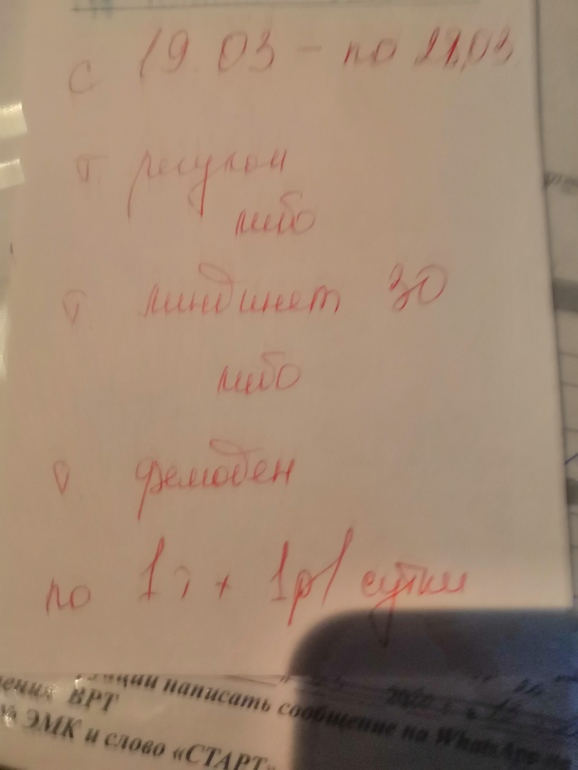 с 19.03 – по 28.03
т. регулон
либо
т. линдинет 30
либо
т. фемоден
по 1 т × 1 р/сутки
ции написать сообщение на WhatsApp на
ения ВРТ
№ ЭМК и слово «СТАРТ»